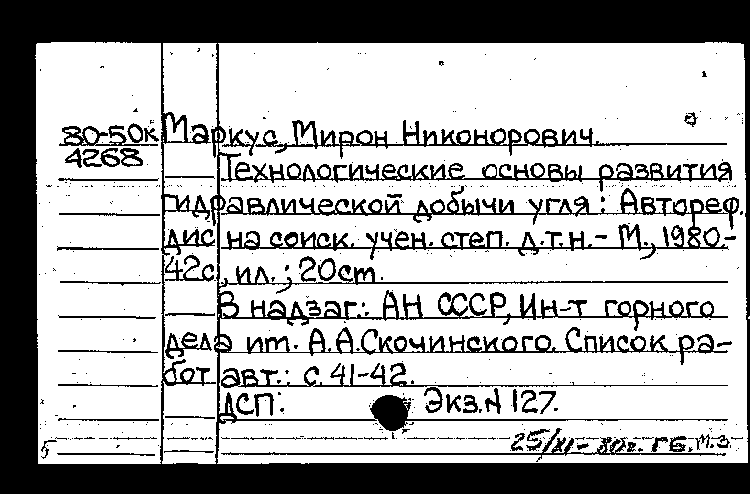 80-50к Маркус, Мирон Никонорович.
4268 Технологические основы развития
гидравлической добычи угля : Автореф.
дис на соиск. учен. степ. д.т.н.- М., 1980.-
42с., ил. ; 20ст.
В надзаг.: АН СССР, Ин-т горного
дела им. А.А.Скочинского. Список ра-
бот авт.: с. 41-42.
ДСП: Экз.N 127.
25/XI- 80г. ГБ. М.З